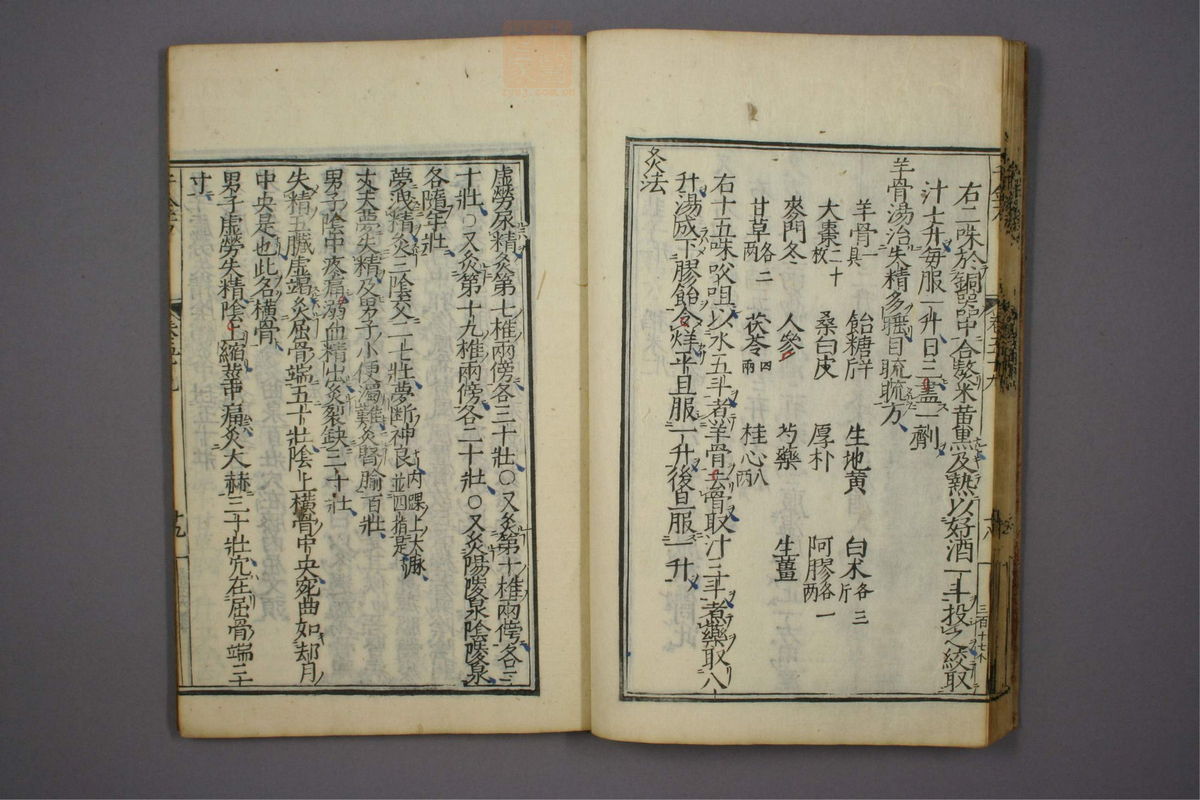 右二味於銅器中合鬻米黄黒及熱以好酒一斗投之絞取
汁七升毎服一升日三盡一劑
羊骨湯治失精多睡目䀮䀮方
羊骨一具 飴糖半斤 生地黄 白术各三斤
大棗二十枚 桑白皮 厚朴 阿膠各一两
麥門冬 人參 芍藥 生薑
甘草各二两 茯苓四兩 桂心八两
右十五味㕮咀以水五斗煮羊骨去骨取汁三斗煮藥取八
升湯成下膠飴令烊平旦服一升後旦服一升
灸法
虚勞尿精灸第七椎兩傍各三十壯〇又灸第十椎兩傍各三
十壯〇又灸第十九椎兩傍各二十壯〇又灸陽陵泉陰陵泉
各隨年壯
夢洩精灸三陰交二七壯夢斷神良内踝上大脉並四指是
丈夫夢失精及男子小便濁難灸腎腧百壯
男子陰中疼痛溺血精出灸裂缺三十壯
失精五臓虚竭灸屈骨端五十壯陰上横骨中央宛曲如却月
中央是也此名横骨
男子虚勞失精陰上縮莖中痛灸大赫三十壯穴在屈骨端三
寸
三百十七